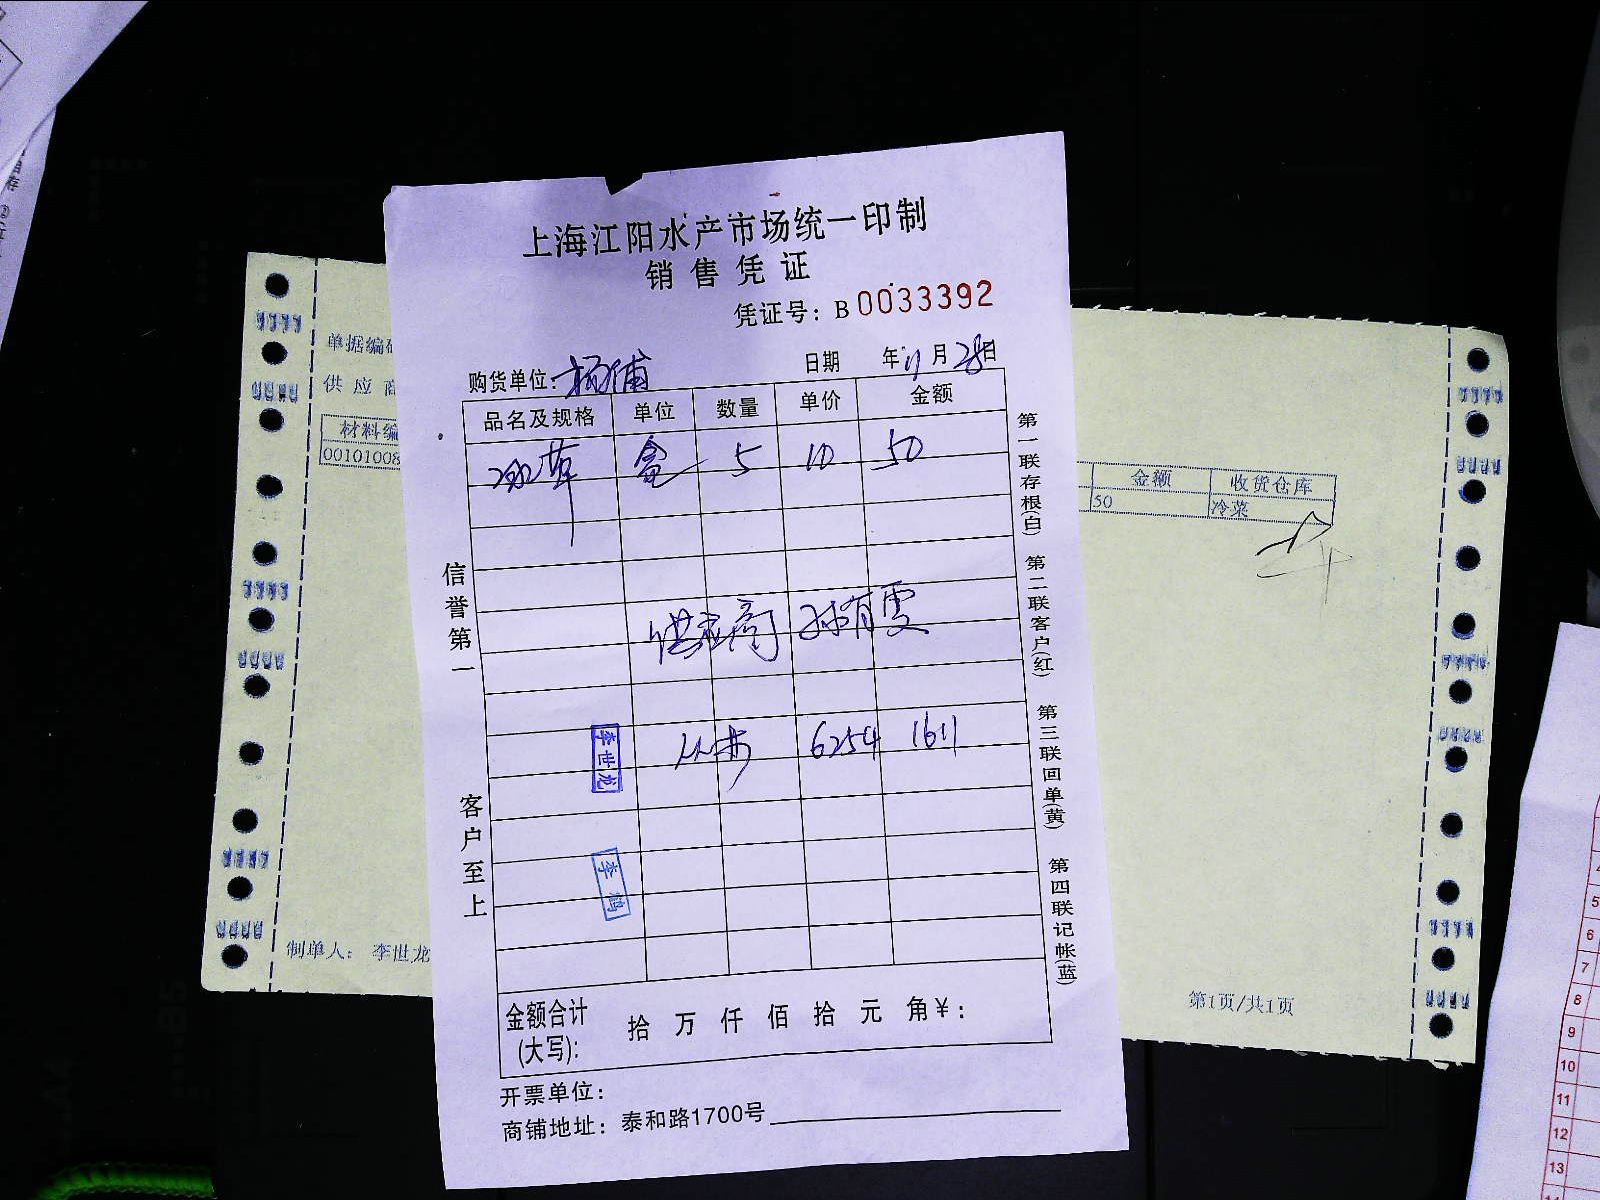 上海江阳水产市场统一印制
销售凭证
凭证号：B0033392
购货单位：杨浦 日期 年11月28日
品名及规格 单位 数量 单价 金额
盒 5 10 50
供应商 孙有雯
6254 1611
李世龙
李鹏
金额合计(大写)： 拾 万 仟 佰 拾 元 角 ¥：
开票单位：
商铺地址：泰和路1700号
信誉第一
客户至上
第一联存根(白)
第二联客户(红)
第三联回单(黄)
第四联记帐(蓝)
单据编
供应商
材料编
00101008
制单人： 李世龙
金额 收货仓库
50 冷菜
第1页/共1页
5
6
7
8
9
10
11
12
13